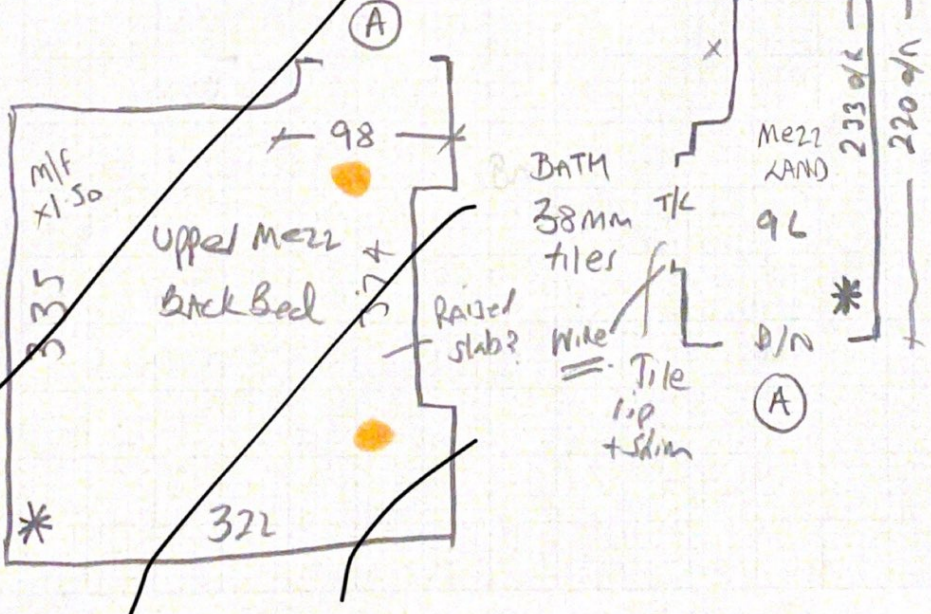 A
98
M/F
x1.50
Upper Mezz
Back Bed
335
374
Raised
slab?
322
BATH
38mm
tiles
T/L
Wire
Tile
lip
+ skim
Mezz
LAND
96
D/N
A
233 o/R
220 o/R